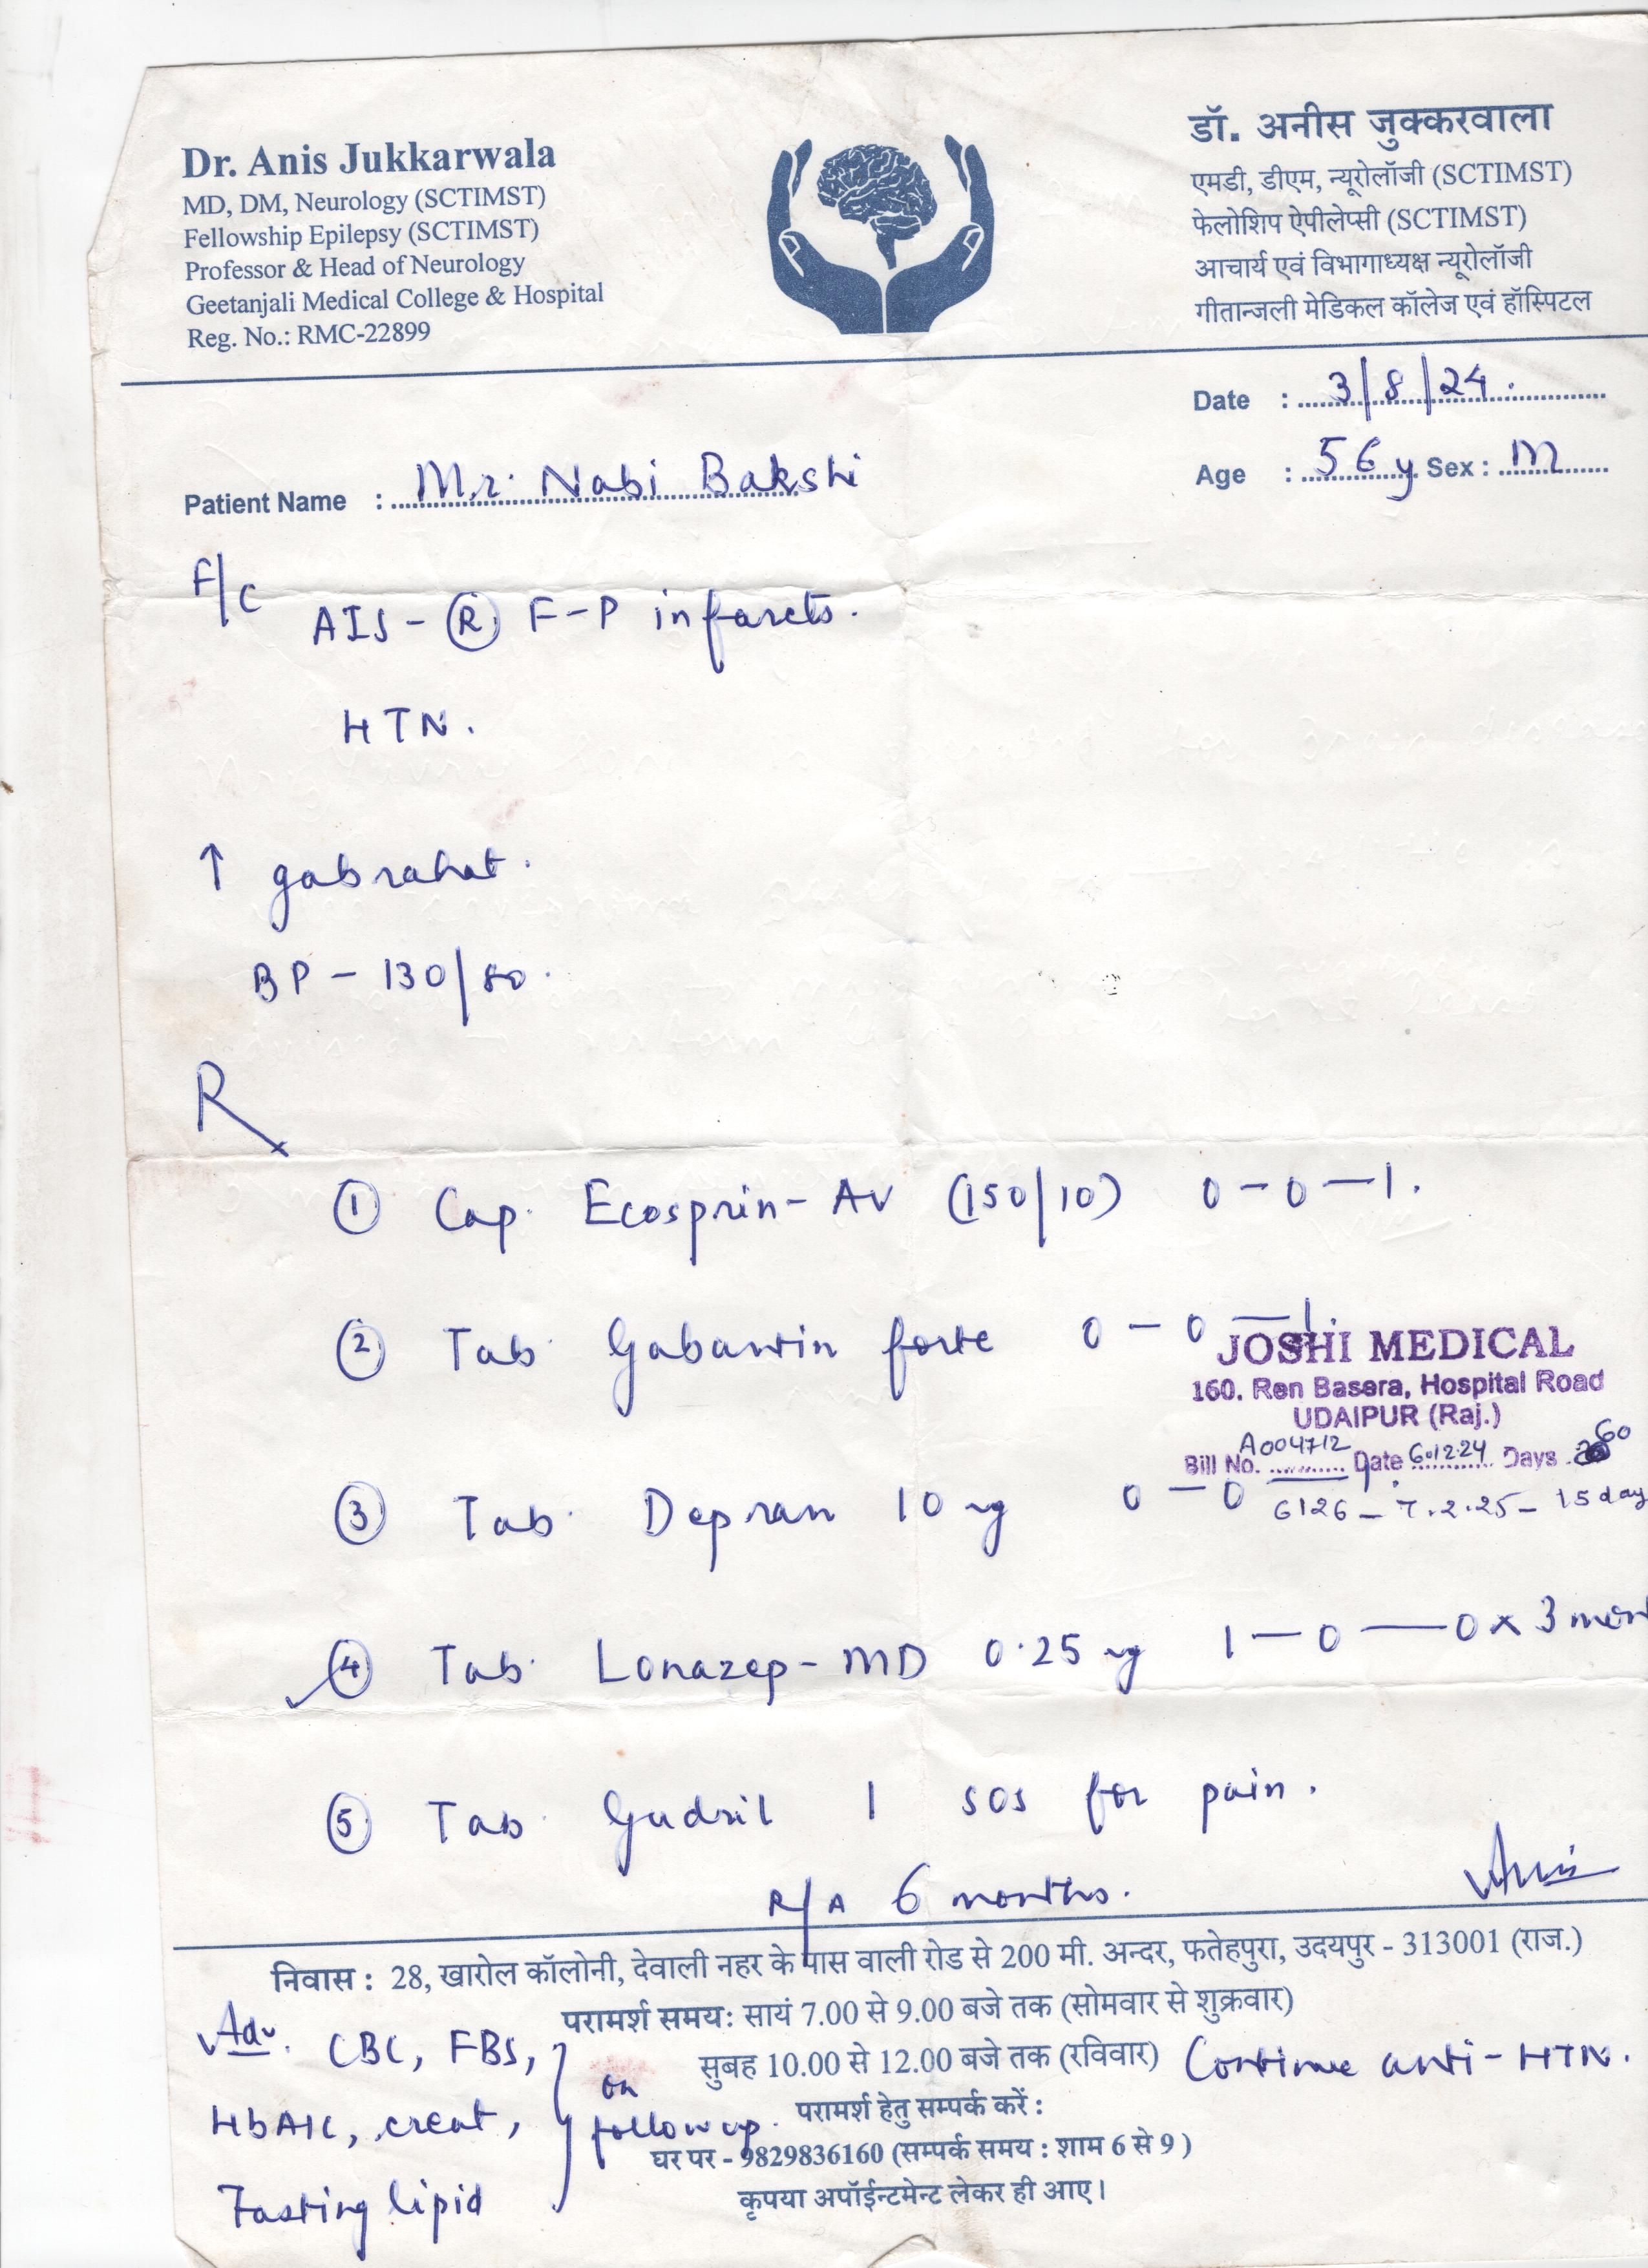 Dr. Anis Jukkarwala
MD, DM, Neurology (SCTIMST)
Fellowship Epilepsy (SCTIMST)
Professor & Head of Neurology
Geetanjali Medical College & Hospital
Reg. No.: RMC-22899
डॉ. अनीस जुक्करवाला
एमडी, डीएम, न्यूरोलॉजी (SCTIMST)
फेलोशिप ऐपीलेप्सी (SCTIMST)
आचार्य एवं विभागाध्यक्ष न्यूरोलॉजी
गीतान्जली मेडिकल कॉलेज एवं हॉस्पिटल
Date : 3/8/24.
Patient Name : Mr. Nabi Bakshi
Age : 56y Sex : M
F/C
AIS - (R) F-P infarcts.
HTN.
↑ gabrahat.
BP - 130/80.
R
(1) Cap. Ecosprin-AV (150/10) 0-0-1.
(2) Tab. Gabawin forte 0-0-1.
JOSHI MEDICAL
160, Ren Basera, Hospital Road
UDAIPUR (Raj.)
Bill No. A004712 Date 6.12.24 Days 60
6126 - 7.2.25 - 15 day
(3) Tab. Depran 10 mg 0-0
(4) Tab. Lonazep-MD 0.25 mg 1-0-0 x 3 mon
(5) Tab. Gudril 1 sos for pain.
R/A 6 months.
निवास : 28, खारोल कॉलोनी, देवाली नहर के पास वाली रोड से 200 मी. अन्दर, फतेहपुरा, उदयपुर - 313001 (राज.)
परामर्श समय: सायं 7.00 से 9.00 बजे तक (सोमवार से शुक्रवार)
सुबह 10.00 से 12.00 बजे तक (रविवार)
परामर्श हेतु सम्पर्क करें :
घर पर - 9829836160 (सम्पर्क समय : शाम 6 से 9 )
कृपया अपॉईन्टमेन्ट लेकर ही आए।
Adv. CBC, FBS,
HbA1c, creat,
Fasting lipid
on
follow up.
Continue anti-HTN.